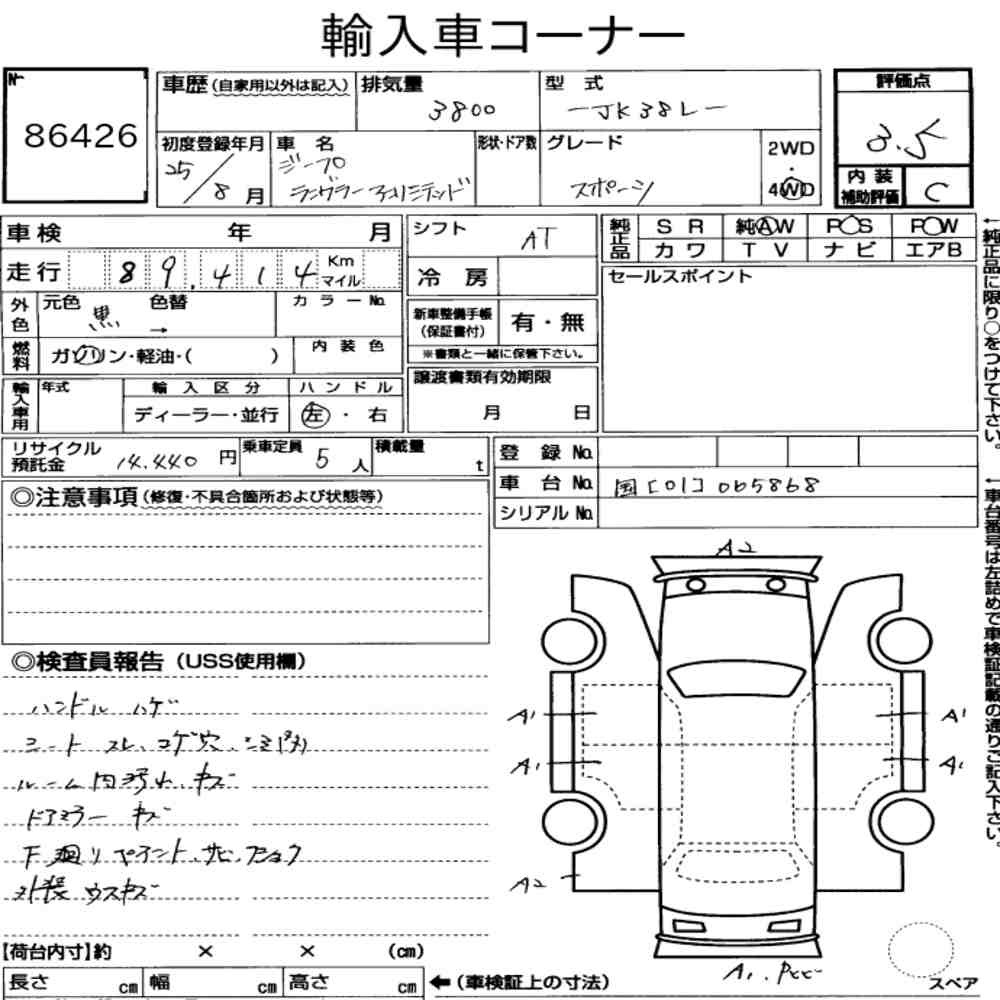 輸入車コーナー
№
86426
車歴(自家用以外は記入)
排気量
3800
型 式
-JK38L-
評価点
3.5
初度登録年月
25/8月
車 名
ジープ
ラングラーアンリミテッド
形状・ドア数
グレード
スポーツ
2WD
・
4WD
内 装
補助評価
C
車検 年 月
走行 89,414 Km
マイル
外色
元色 色替
黒 →
カラーNo.
燃料
ガソリン・軽油・( )
内装色
輸入車用
年式
輸入区分
ディーラー・並行
ハンドル
左・右
シフト
AT
冷 房
新車整備手帳
(保証書付)
有・無
※書類と一緒に保管下さい。
譲渡書類有効期限
月 日
純正品
SR 純AW PS PW
カワ TV ナビ エアB
セールスポイント
←純正品に限り○をつけて下さい。
リサイクル
預託金
14.440円
乗車定員
5人
積載量
t
登 録 No.
車 台 No. 国[01]065868
シリアル No.
←車台番号は左詰めで車検証記載の通りご記入下さい。
◎注意事項(修復・不具合箇所および状態等)
◎検査員報告(USS使用欄)
ハンドル ハゲ
シート スレ、コゲ穴、シミ
ルーム内汚れ、キズ
ドアミラー キズ
下廻り ペイント、サビ
外装 ウスキズ
A2
A1
A1
A1
A1
A2
A1.
スペア
【荷台内寸】約 × × (cm)
長さ cm 幅 cm 高さ cm
←(車検証上の寸法)